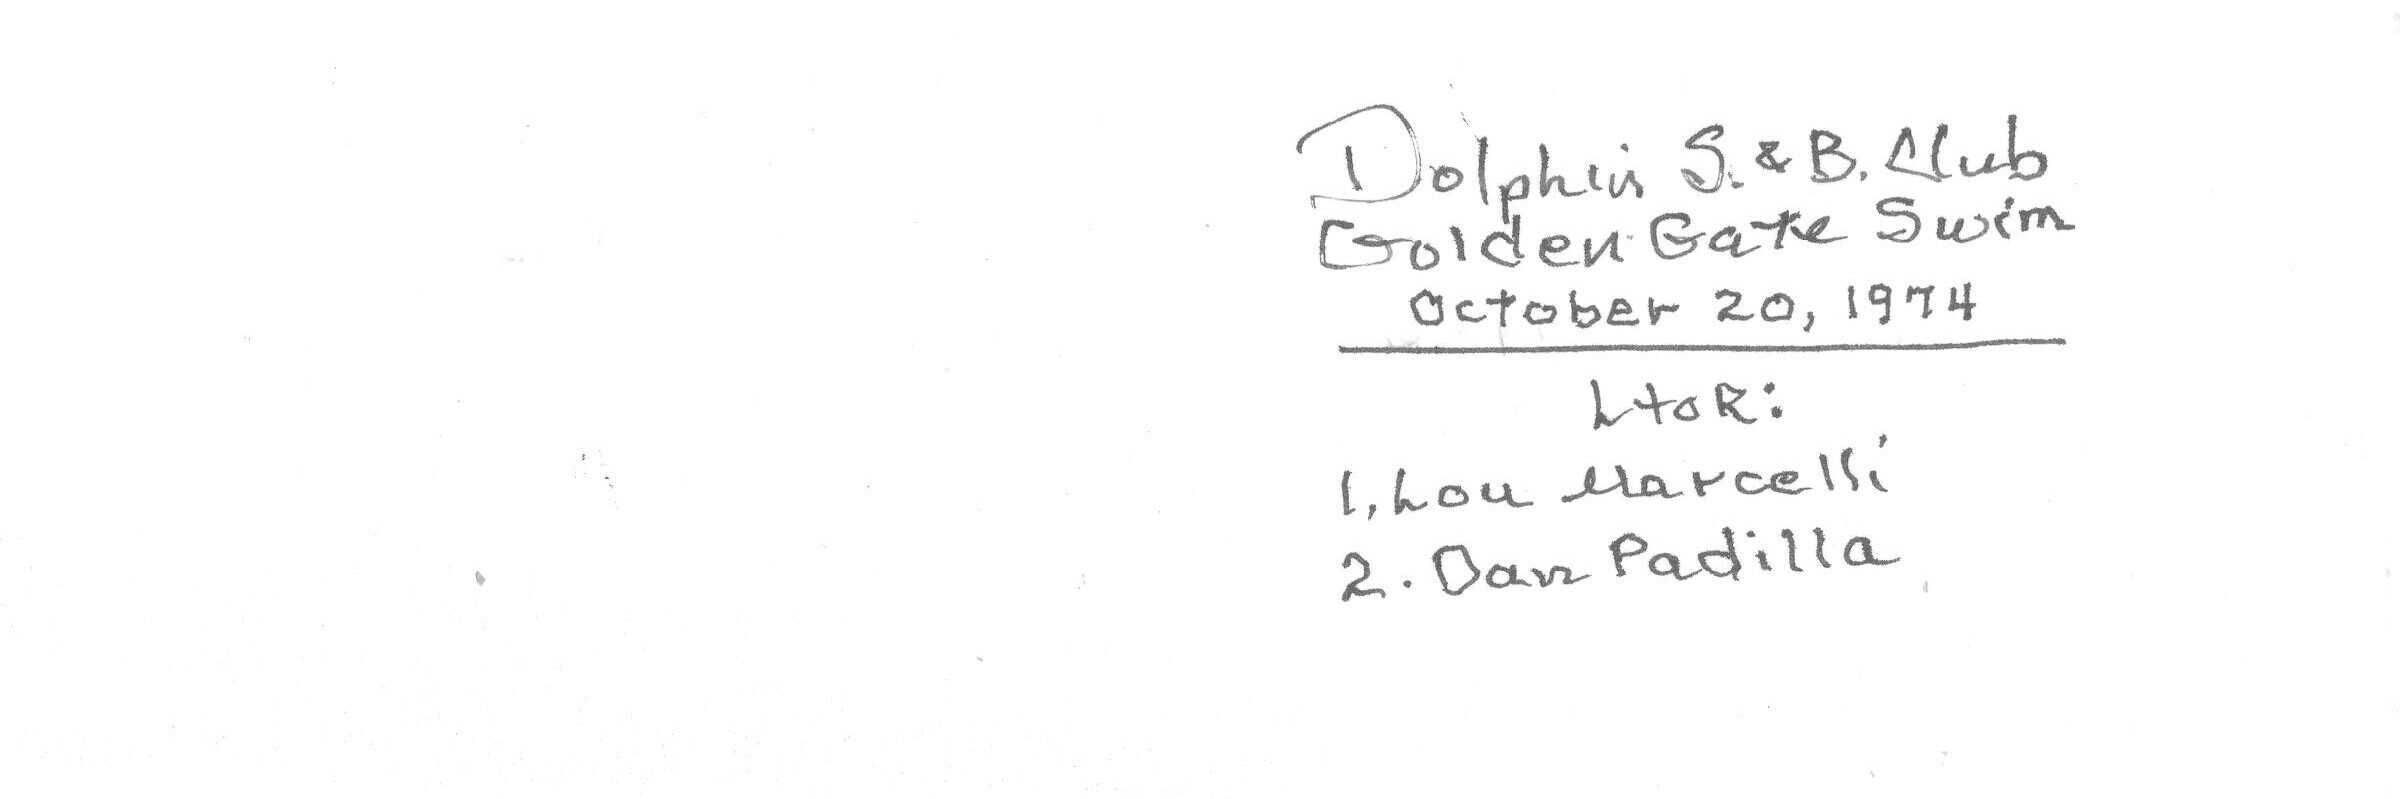 Dolphin S. & B. Club
Golden Gate Swim
October 20, 1974
L to R:
1. Lou Marcelli
2. Dan Padilla